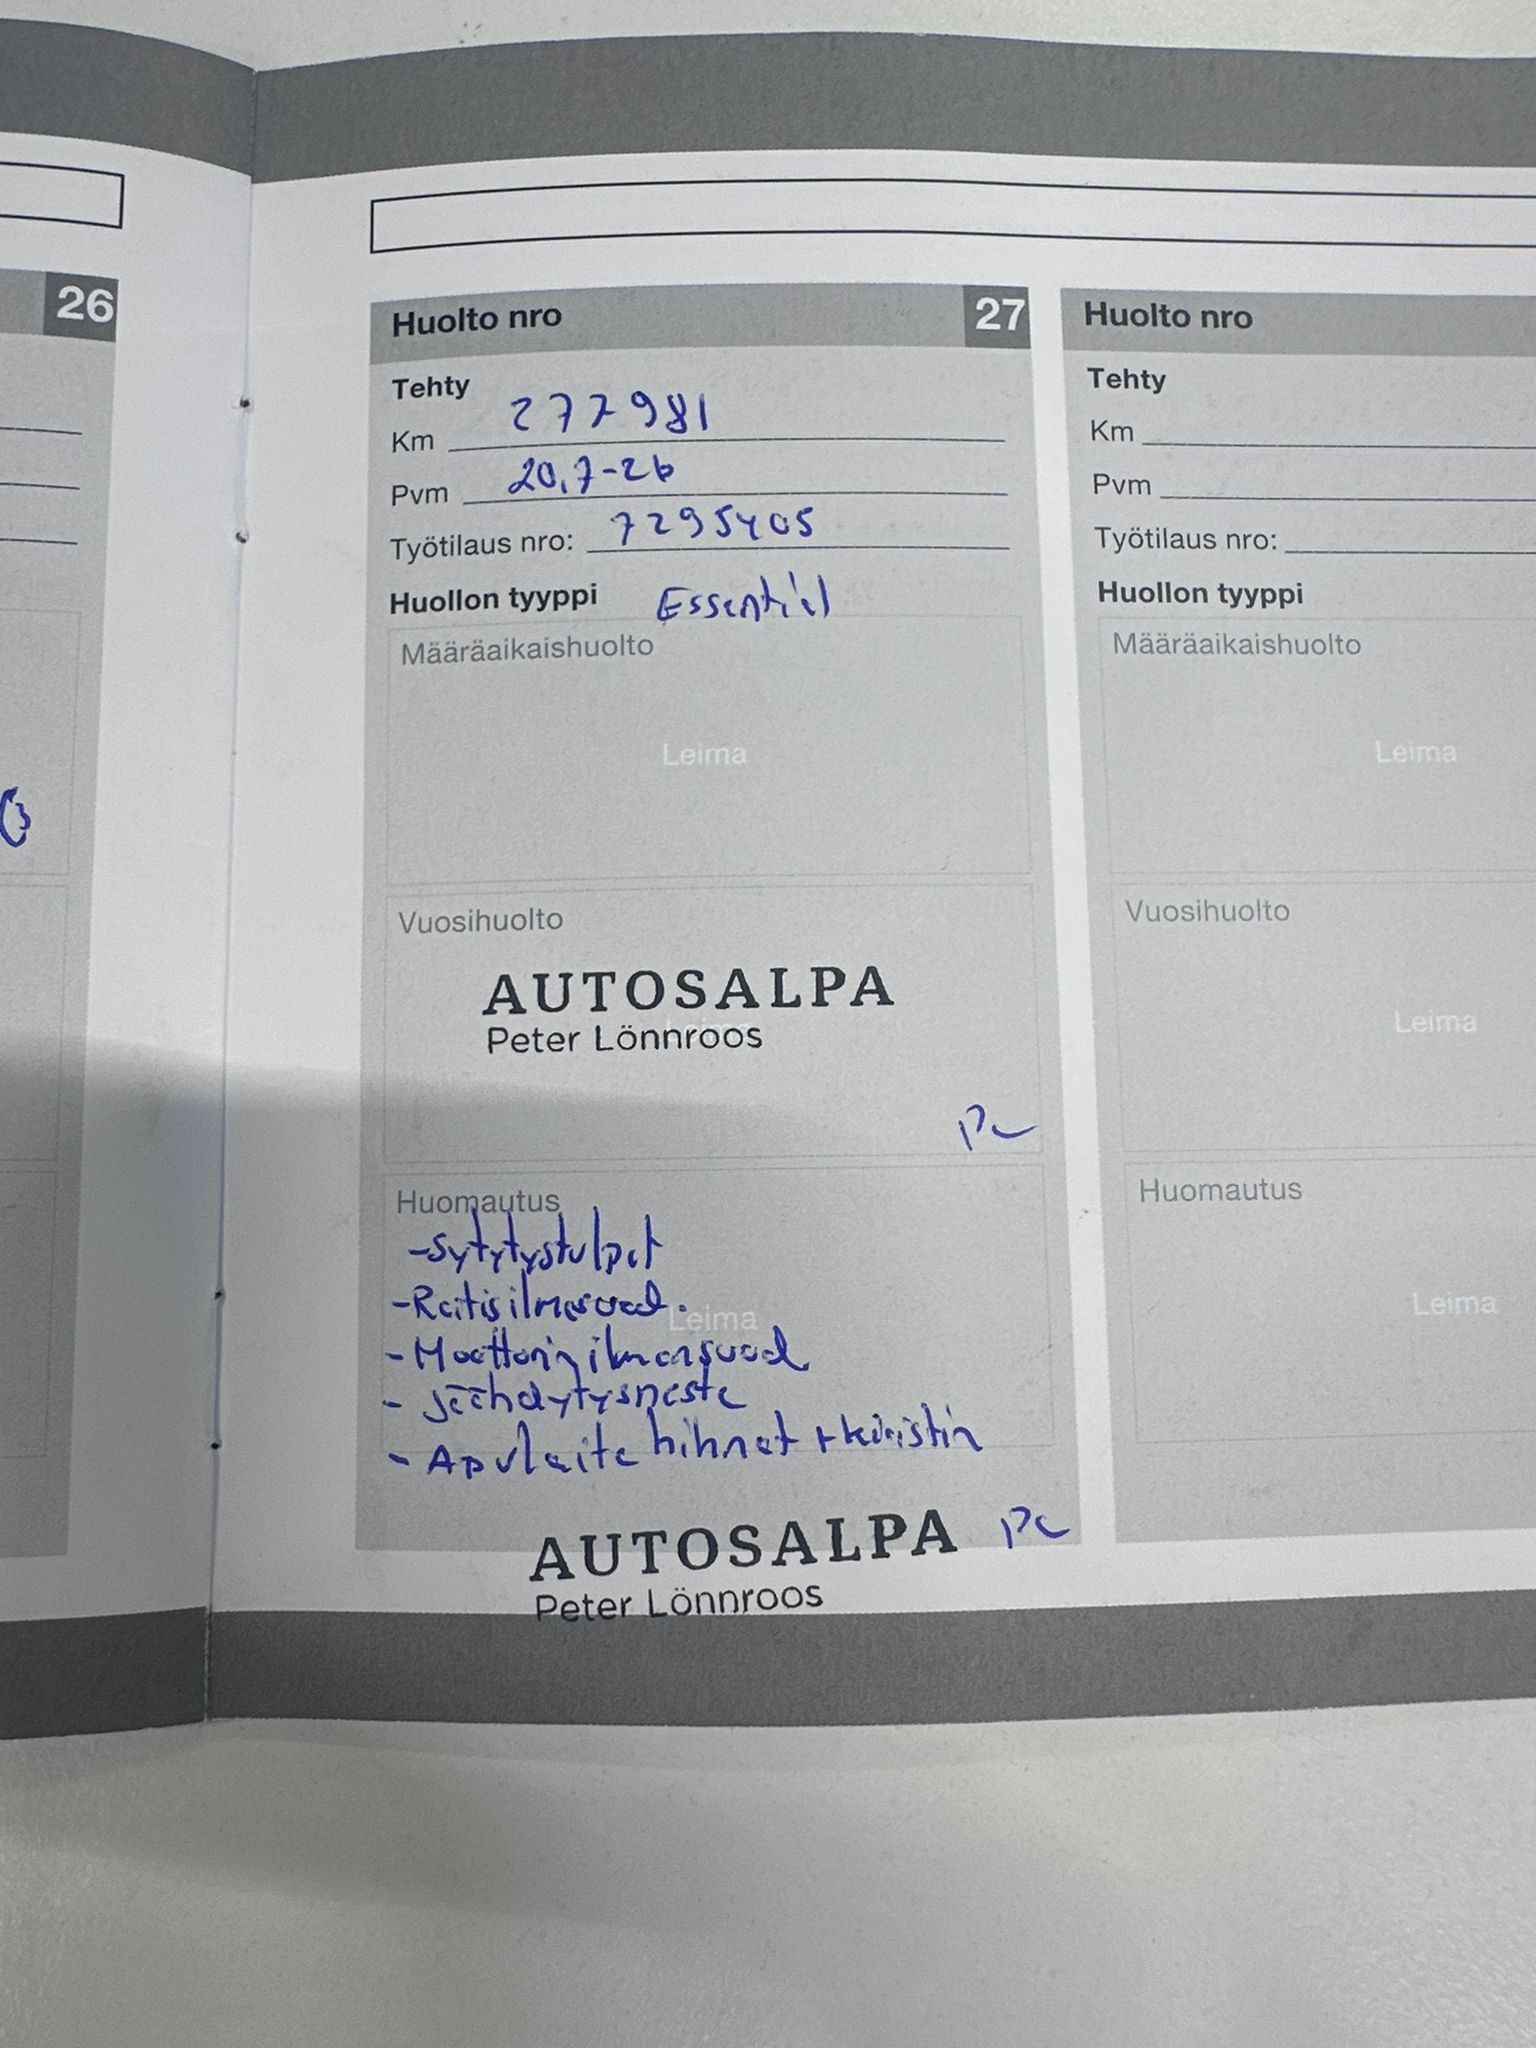 26
Huolto nro 27
Tehty
Km 277981
Pvm 20.7-26
Työtilaus nro: 7295405
Huollon tyyppi Essential
Määräaikaishuolto
Leima
Vuosihuolto
AUTOSALPA
Leima
Peter Lönnroos
Huomautus
-Sytytystulpat
-Raitisilmasuod.
Leima
-Moottorin ilmansuod
- Jäähdytysneste
- Apulaite hihnat + kiristin
AUTOSALPA
Peter Lönnroos
Huolto nro
Tehty
Km
Pvm
Työtilaus nro:
Huollon tyyppi
Määräaikaishuolto
Leima
Vuosihuolto
Leima
Huomautus
Leima